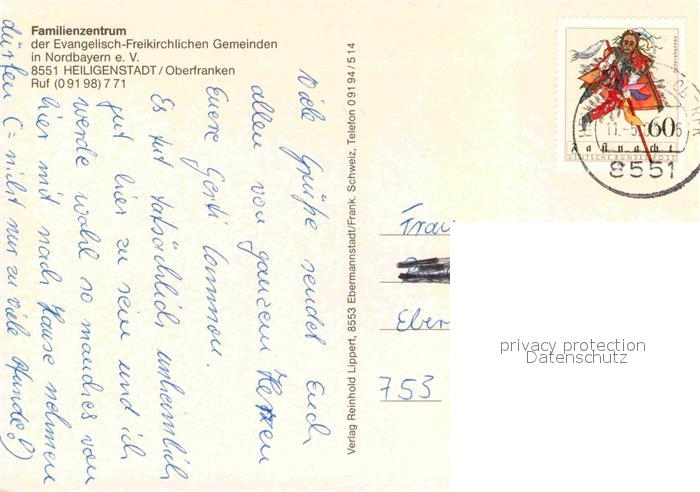 Familienzentrum
der Evangelisch-Freikirchlichen Gemeinden
in Nordbayern e. V.
8551 HEILIGENSTADT/Oberfranken
Ruf (0 91 98) 7 71
Viele Grüße sendet Euch
allen von ganzem Herzen
Euere Gerti
Es tut tatsächlich unheimlich
gut hier zu sein und ich
werde wohl so manches von
hier mit nach Hause nehmen
dürfen (= nicht nur zu viele Pfunde!)
Verlag Reinhold Lippert, 8553 Ebermannstadt/Frank. Schweiz, Telefon 0 91 94/5 14
60
Fastnacht
DEUTSCHE BUNDESPOST
11.-5.
8551
Frau
Eber
753
privacy protection
Datenschutz